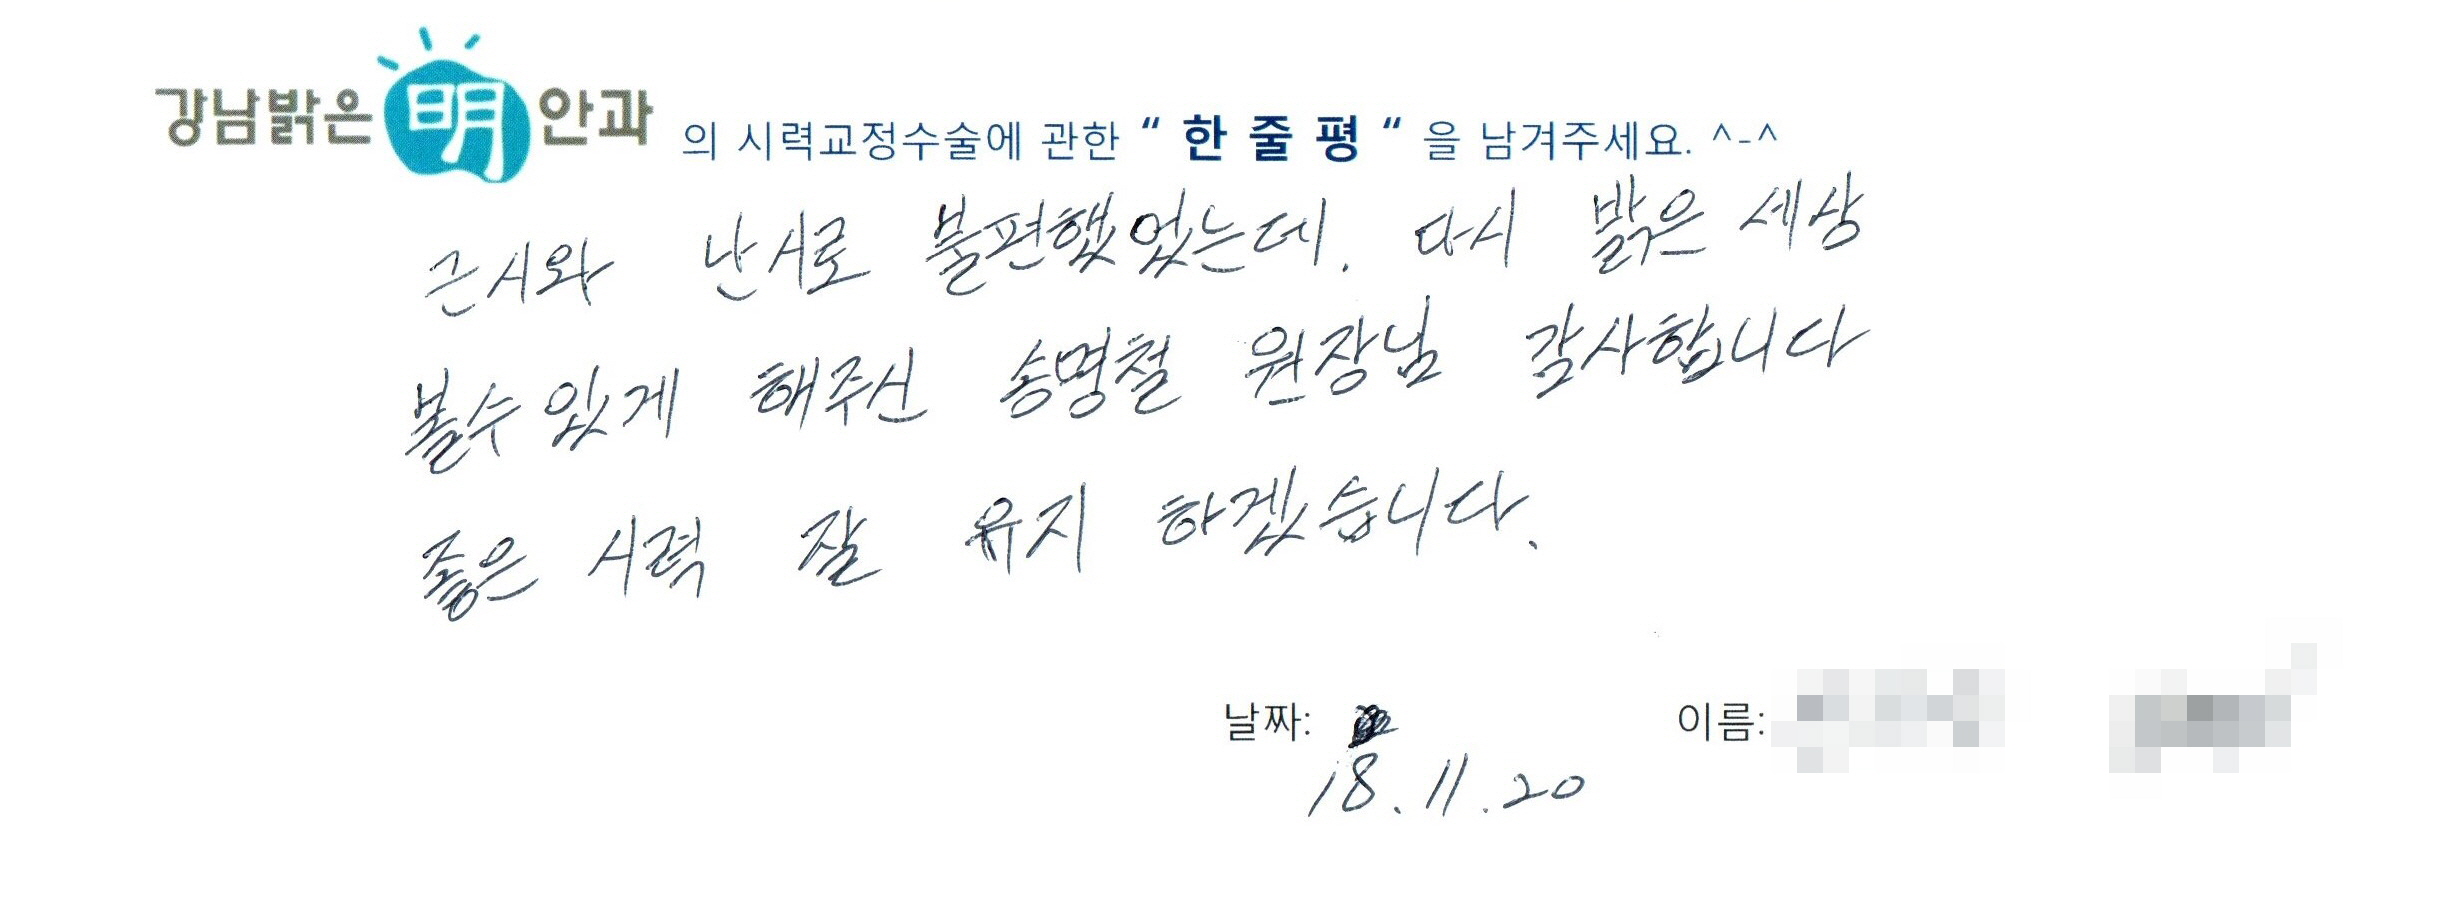 강남밝은明안과 의 시력교정수술에 관한 “ 한 줄 평 “ 을 남겨주세요. ^-^
근시와 난시로 불편했었는데. 다시 밝은 세상
볼수있게 해주신 송명철 원장님 감사합니다
좋은 시력 잘 유지 하겠습니다.
날짜: 이름:
18.11.20